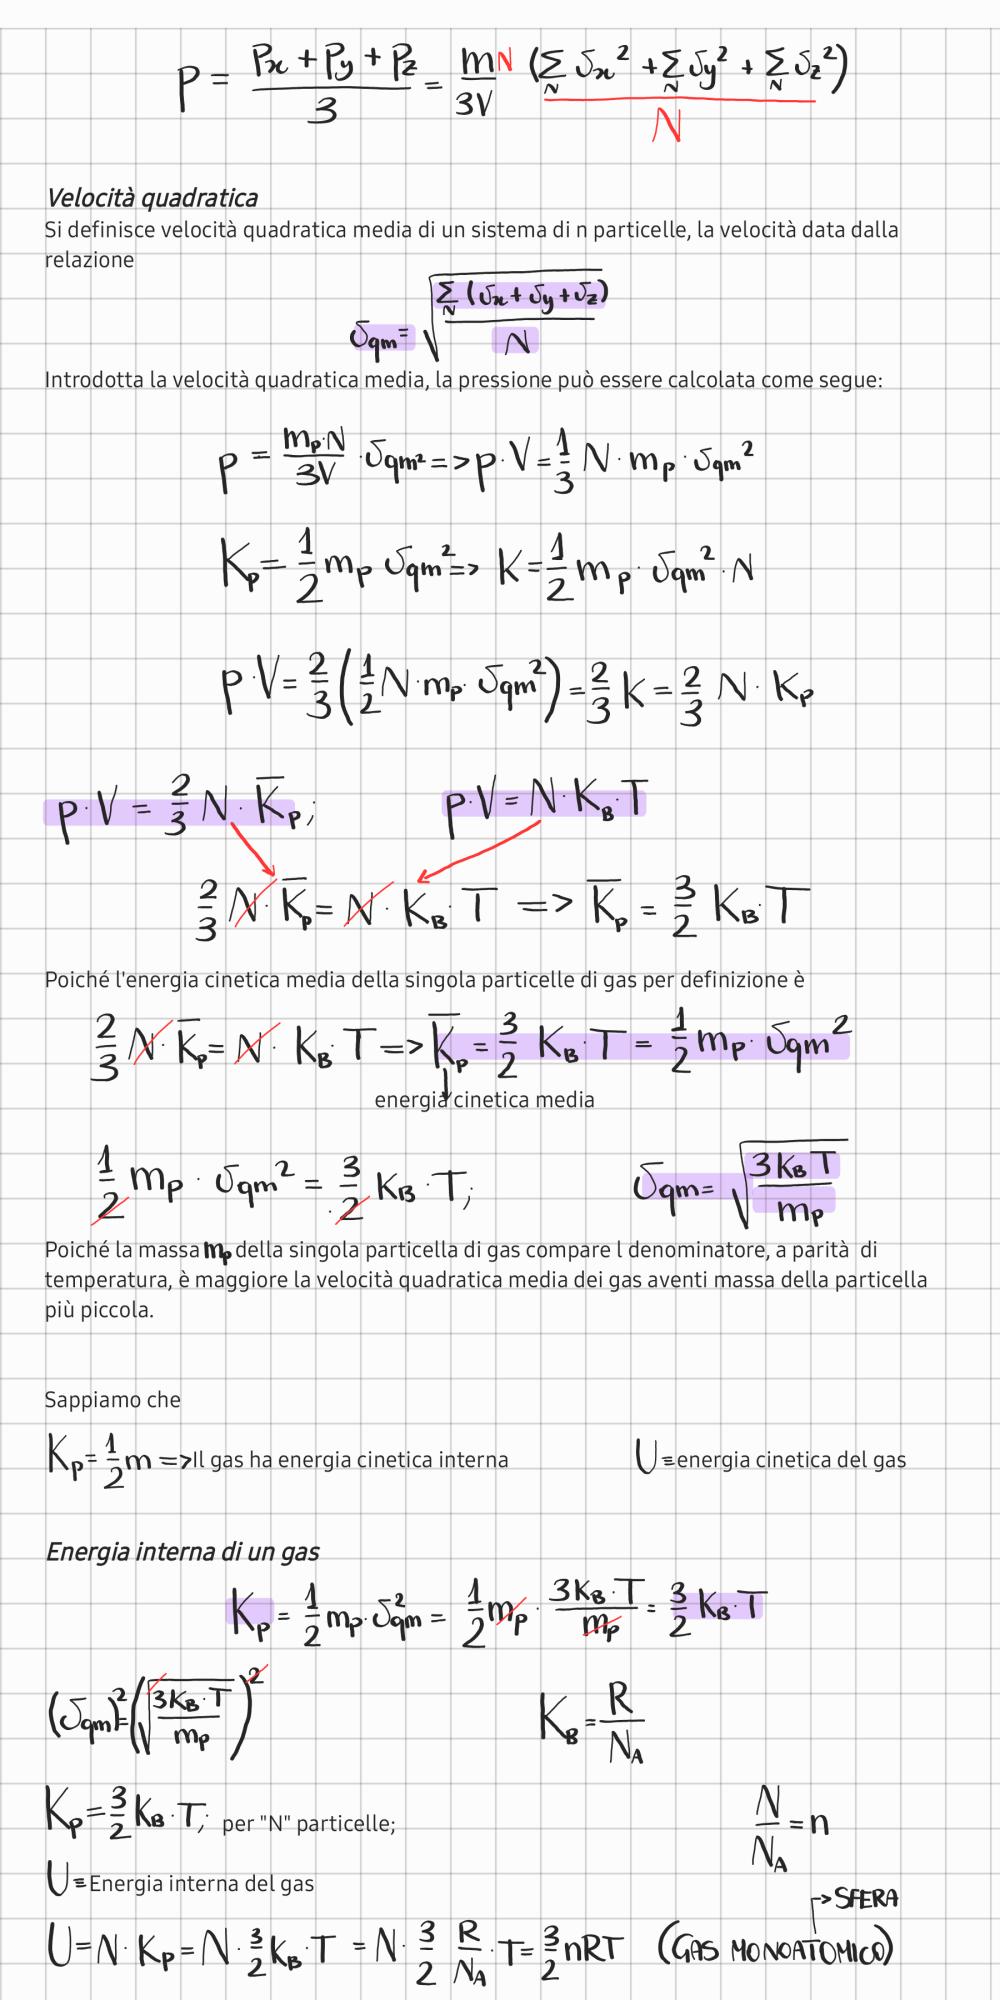 P = (Px + Py + Pz)/3 = mN/3V (Σ_N vx² + Σ_N vy² + Σ_N vz²)/N
Velocità quadratica
Si definisce velocità quadratica media di un sistema di n particelle, la velocità data dalla
relazione
vqm = √(Σ_N (vx + vy + vz)/N)
Introdotta la velocità quadratica media, la pressione può essere calcolata come segue:
p = mp·N/3V · vqm² => p·V = 1/3 N · mp · vqm²
Kp = 1/2 mp vqm² => K = 1/2 mp · vqm² · N
p·V = 2/3 (1/2 N·mp· vqm²) = 2/3 K = 2/3 N · Kp
p·V = 2/3 N · K̅p ; p·V = N·KB·T
2/3 N · K̅p = N · KB · T => K̅p = 3/2 KB·T
Poiché l'energia cinetica media della singola particelle di gas per definizione è
2/3 N · K̅p = N · KB · T => K̅p = 3/2 KB · T = 1/2 mp · vqm²
energia cinetica media
1/2 mp · vqm² = 3/2 KB · T; vqm = √(3KB T/mp)
Poiché la massa mp della singola particella di gas compare l denominatore, a parità di
temperatura, è maggiore la velocità quadratica media dei gas aventi massa della particella
più piccola.
Sappiamo che
Kp = 1/2 m => Il gas ha energia cinetica interna U = energia cinetica del gas
Energia interna di un gas
Kp = 1/2 mp·vqm² = 1/2 mp · 3KB·T/mp = 3/2 KB·T
(vqm)² = (√(3KB·T/mp))² KB = R/NA
Kp = 3/2 KB · T; per "N" particelle; N/NA = n
U = Energia interna del gas
-> SFERA
U = N · Kp = N · 3/2 KB · T = N · 3/2 R/NA · T = 3/2 nRT (GAS MONOATOMICO)